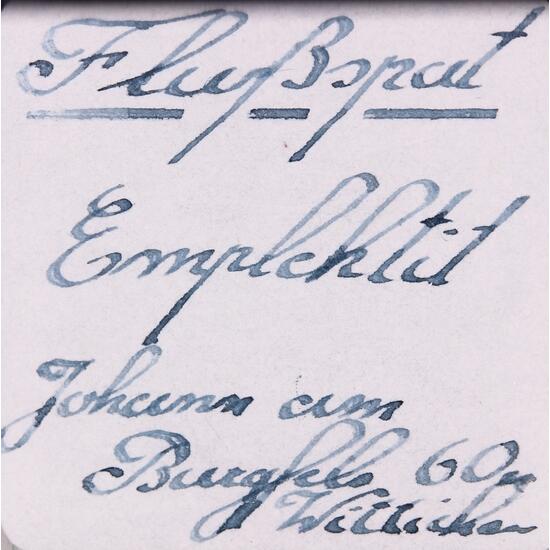 Flußspat
Emplektit
Johann am
Burgfels 60m
Wittichen